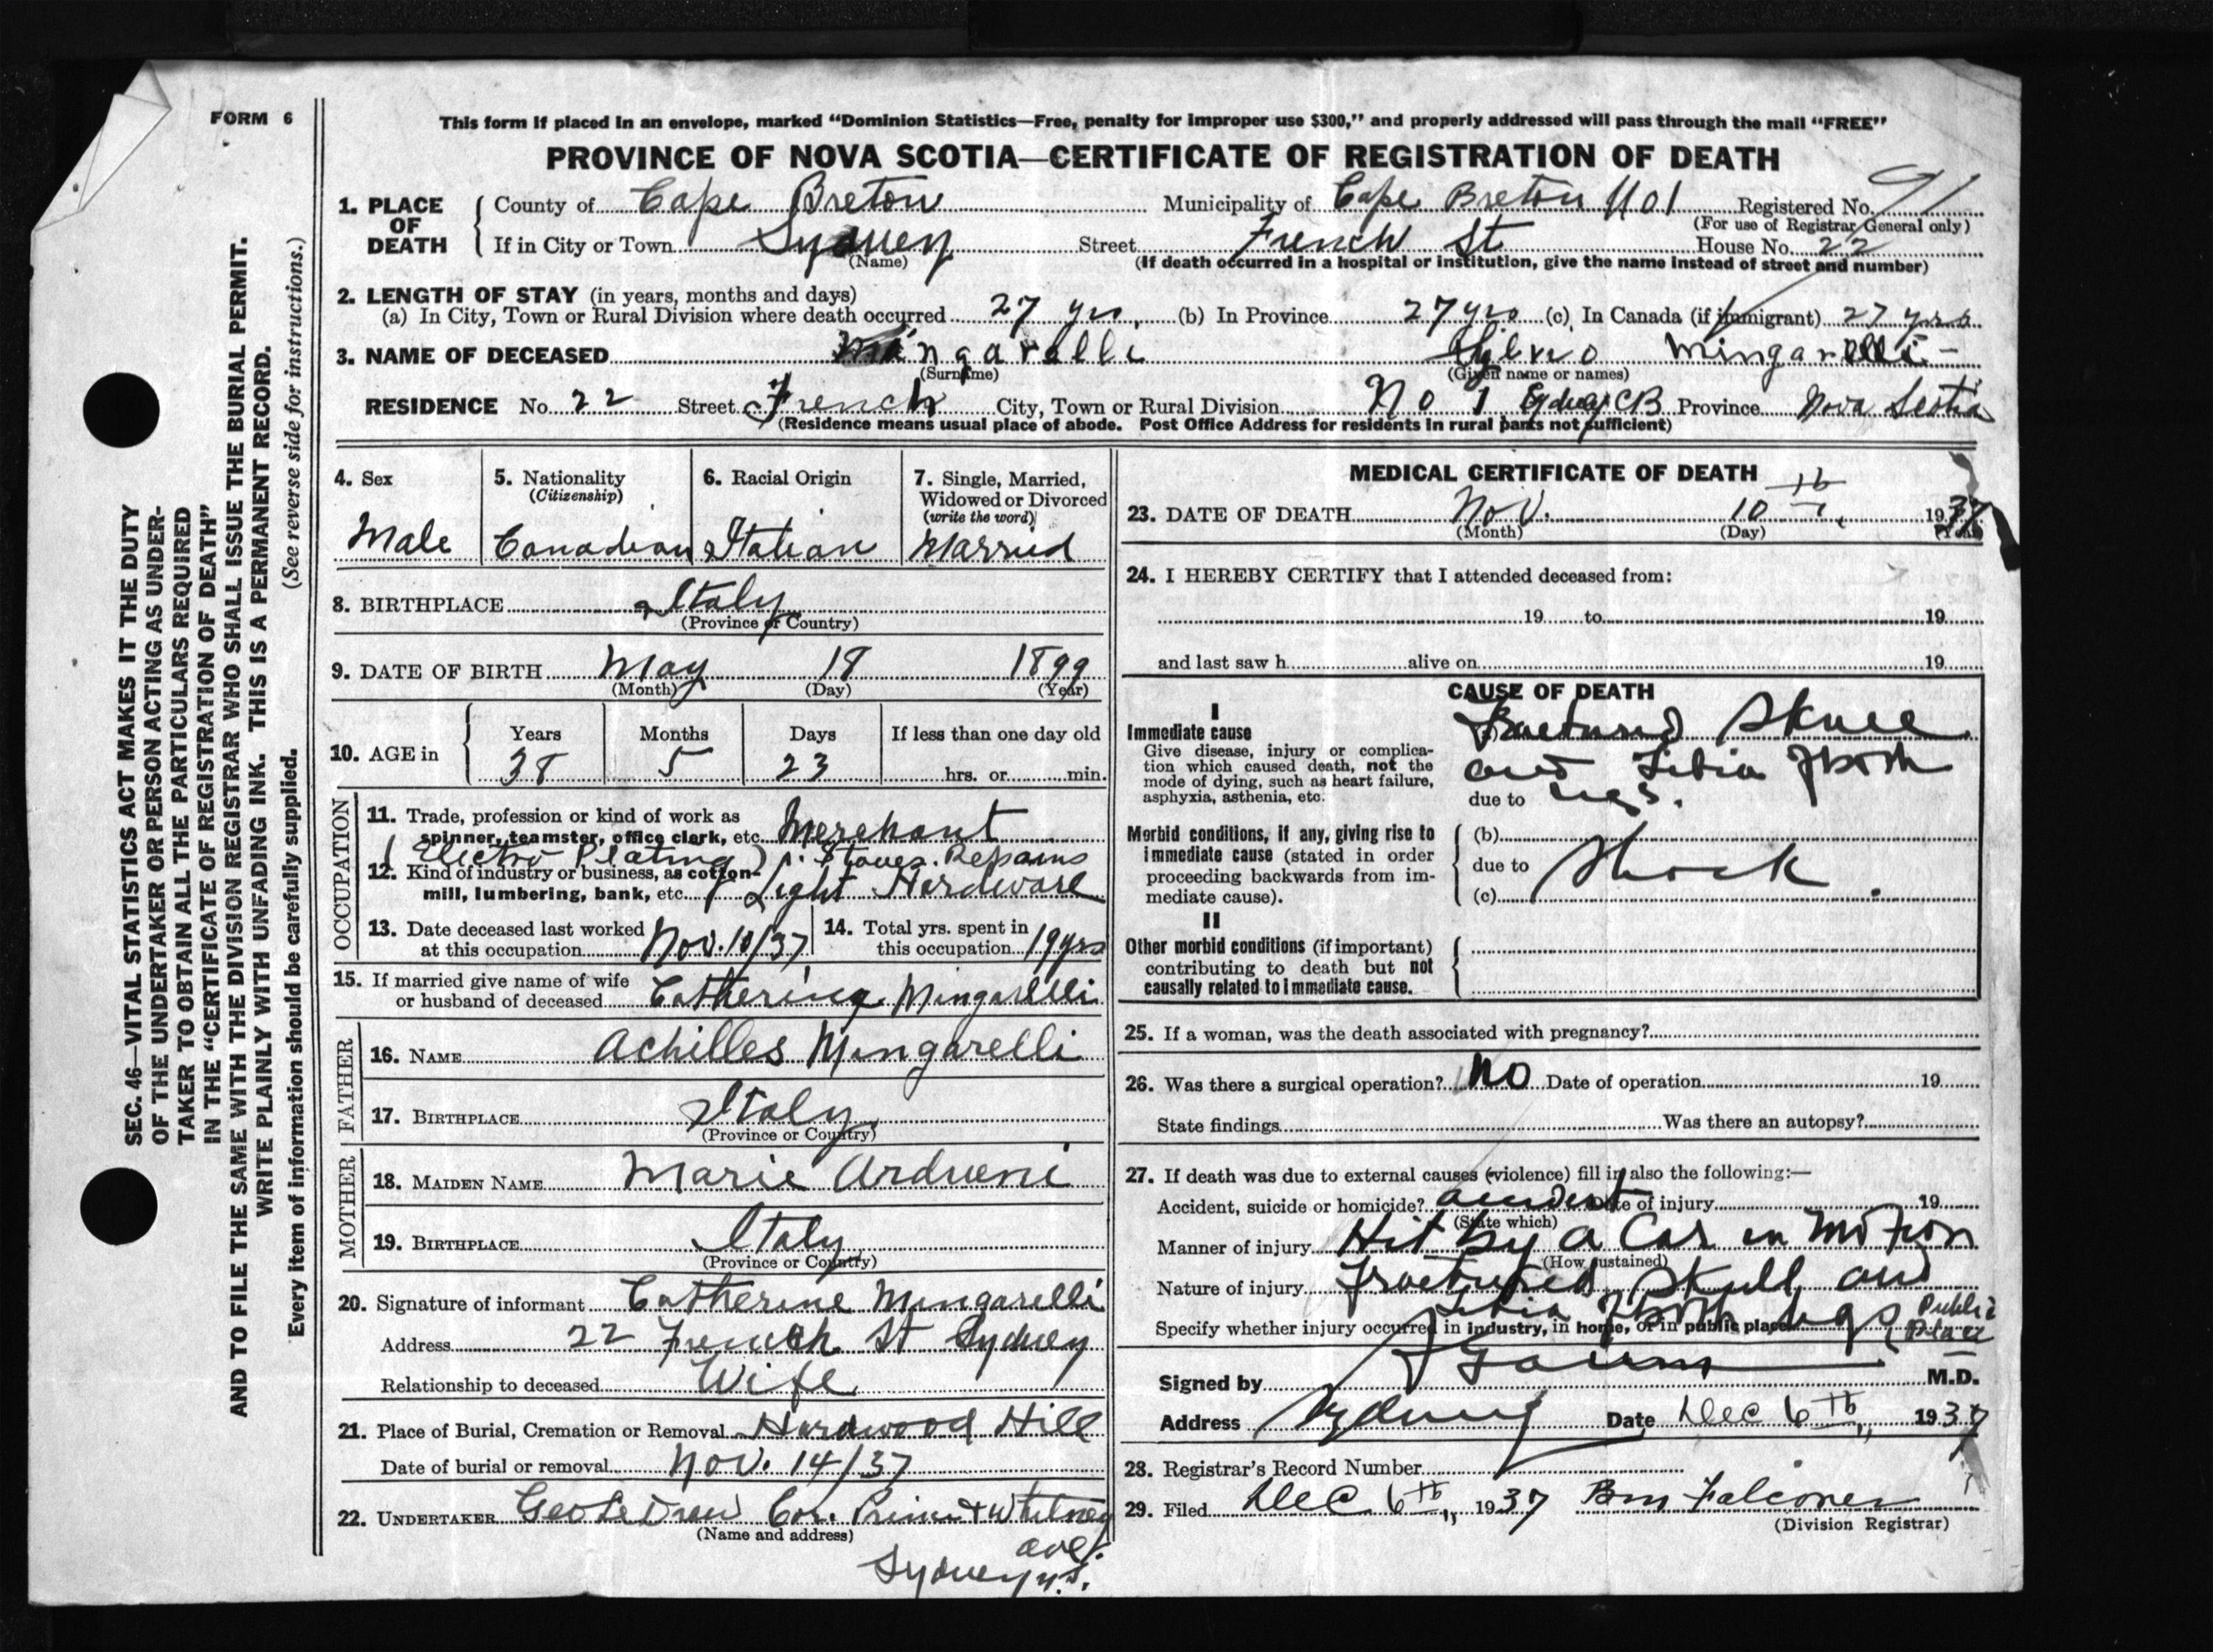 FORM 6
This form if placed in an envelope, marked “Dominion Statistics—Free, penalty for improper use $300,” and properly addressed will pass through the mail “FREE”
PROVINCE OF NOVA SCOTIA—CERTIFICATE OF REGISTRATION OF DEATH
1. PLACE OF DEATH
County of Cape Breton Municipality of Cape Breton No 1 Registered No. 91
(For use of Registrar General only)
If in City or Town Sydney Street French St House No. 22
(Name) (If death occurred in a hospital or institution, give the name instead of street and number)
2. LENGTH OF STAY (in years, months and days)
(a) In City, Town or Rural Division where death occurred 27 yrs. (b) In Province 27 yrs (c) In Canada (if immigrant) 27 yrs
3. NAME OF DECEASED Mingarelli Silvio Mingarelli
(Surname) (Given name or names)
RESIDENCE No. 22 Street French City, Town or Rural Division No 1 Sydney CB Province Nova Scotia
(Residence means usual place of abode. Post Office Address for residents in rural parts not sufficient)
4. Sex
Male
5. Nationality
(Citizenship)
Canadian
6. Racial Origin
Italian
7. Single, Married,
Widowed or Divorced
(write the word)
Married
8. BIRTHPLACE Italy
(Province or Country)
9. DATE OF BIRTH May 18 1899
(Month) (Day) (Year)
10. AGE in
Years Months Days If less than one day old
38 5 23 hrs. or min.
OCCUPATION
11. Trade, profession or kind of work as
spinner, teamster, office clerk, etc. Merchant
(Electro Plating) Stoves. Repairs
12. Kind of industry or business, as cotton-
mill, lumbering, bank, etc. Light Hardware
13. Date deceased last worked
at this occupation Nov. 10/37
14. Total yrs. spent in
this occupation 19 yrs
15. If married give name of wife
or husband of deceased Catherine Mingarelli
FATHER
16. NAME Achilles Mingarelli
17. BIRTHPLACE Italy
(Province or Country)
MOTHER
18. MAIDEN NAME Marie Ardueni
19. BIRTHPLACE Italy
(Province or Country)
20. Signature of informant Catherine Mingarelli
Address 22 French St Sydney
Relationship to deceased Wife
21. Place of Burial, Cremation or Removal Hardwood Hill
Date of burial or removal Nov. 14/37
22. UNDERTAKER Geo Le Drew Cor. Prince + Whitney
(Name and address) ave.
Sydney N.S.
MEDICAL CERTIFICATE OF DEATH
23. DATE OF DEATH Nov. 10th, 1937
(Month) (Day) (Year)
24. I HEREBY CERTIFY that I attended deceased from:
19 to 19
and last saw h alive on 19
CAUSE OF DEATH
I
Immediate cause
Give disease, injury or complica-
tion which caused death, not the
mode of dying, such as heart failure,
asphyxia, asthenia, etc.
Fractured Skull
and Tibia of both
due to legs.
Morbid conditions, if any, giving rise to
immediate cause (stated in order
proceeding backwards from im-
mediate cause).
(b)
due to Shock
(c)
II
Other morbid conditions (if important)
contributing to death but not
causally related to immediate cause.
25. If a woman, was the death associated with pregnancy?
26. Was there a surgical operation? No Date of operation 19
State findings Was there an autopsy?
27. If death was due to external causes (violence) fill in also the following:—
Accident, suicide or homicide? accident Date of injury 19
(State which)
Manner of injury Hit by a Car in Motion
(How sustained)
Nature of injury Fractured Skull and
Tibia of both legs
Specify whether injury occurred in industry, in home, or in public place Public Place
Signed by M.D.
Address Sydney Date Dec 6th, 1937
28. Registrar's Record Number
29. Filed Dec 6th, 1937 Bm Falconer
(Division Registrar)
SEC. 46—VITAL STATISTICS ACT MAKES IT THE DUTY
OF THE UNDERTAKER OR PERSON ACTING AS UNDER-
TAKER TO OBTAIN ALL THE PARTICULARS REQUIRED
IN THE “CERTIFICATE OF REGISTRATION OF DEATH”
AND TO FILE THE SAME WITH THE DIVISION REGISTRAR WHO SHALL ISSUE THE BURIAL PERMIT.
WRITE PLAINLY WITH UNFADING INK. THIS IS A PERMANENT RECORD.
Every item of information should be carefully supplied. (See reverse side for instructions.)